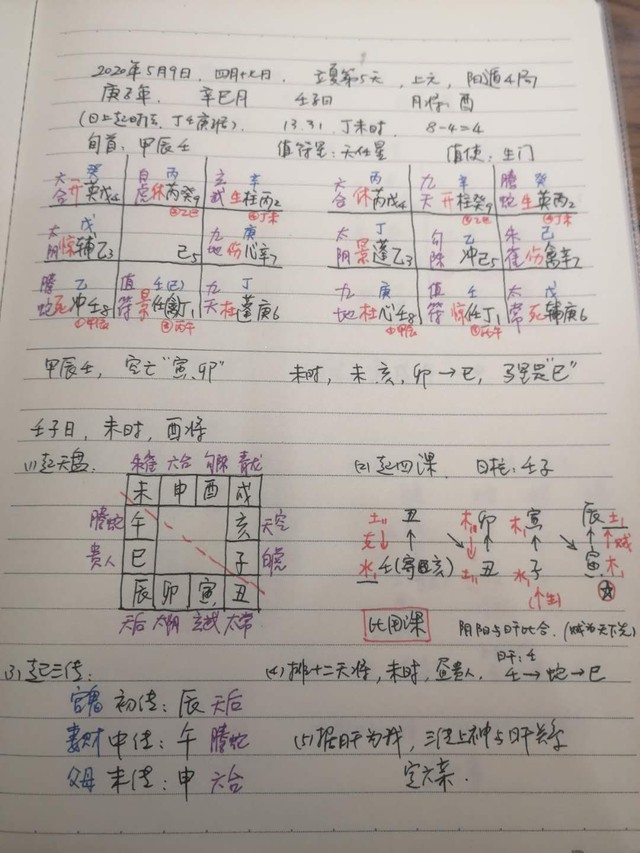 2020年5月9日，四月十七日，立夏第5天，上元，阳遁4局
庚子年，辛巳月 壬子日 月将：酉
(日上起时法，丁壬庚子居) 13:31，丁未时， 8-4=4
旬首：甲辰壬 值符星：天任星 值使：生门
六合 癸 开英戊4 白虎 丙 休芮癸9 ⑤乙巳 玄武 辛 生柱丙2 ④丁未
太阴 戊 惊辅乙3 己5 九地 庚 伤心辛7
螣蛇 乙 死冲壬8 ①甲辰 值符 壬(己) 景任禽丁1 ③丙午 九天 丁 杜蓬庚6
六合 丙 休芮戊4 九天 辛 开柱癸9 ②乙巳 螣蛇 癸 生英丙2 ④丁未
太阴 丁 景蓬乙3 勾陈 乙 冲己5 朱雀 己 伤禽辛7
九地 庚 杜心壬8 ①甲辰 值符 壬 惊任丁1 ③丙午 太常 戊 死辅庚6
甲辰壬，空亡"寅、卯" 未时，未、亥、卯→巳，马星是"巳"
壬子日，未时，酉将
(1)起天盘 朱雀 六合 勾陈 青龙
未 申 酉 戌
螣蛇 午 亥 天空
贵人 巳 子 白虎
辰 卯 寅 丑
天后 太阴 玄武 太常
(2)起四课 日柱：壬子
土 丑 木 卯 木 寅 辰 土
克 ↓ ↑ ↑ ↑ ↑ 贼
水 壬(寄亥) 土 丑 水 子 寅 木
(↑生)
比用课 阴阳与日比合，(贼为天下先)
(3)起三传：
官鬼 初传：辰 天后
妻财 中传：午 螣蛇
父母 末传：申 六合
(4)排十二天将，未时，昼贵人， 日干：壬 壬→蛇→巳
(5)据日干为我，三传上神与日干关系
定六亲．